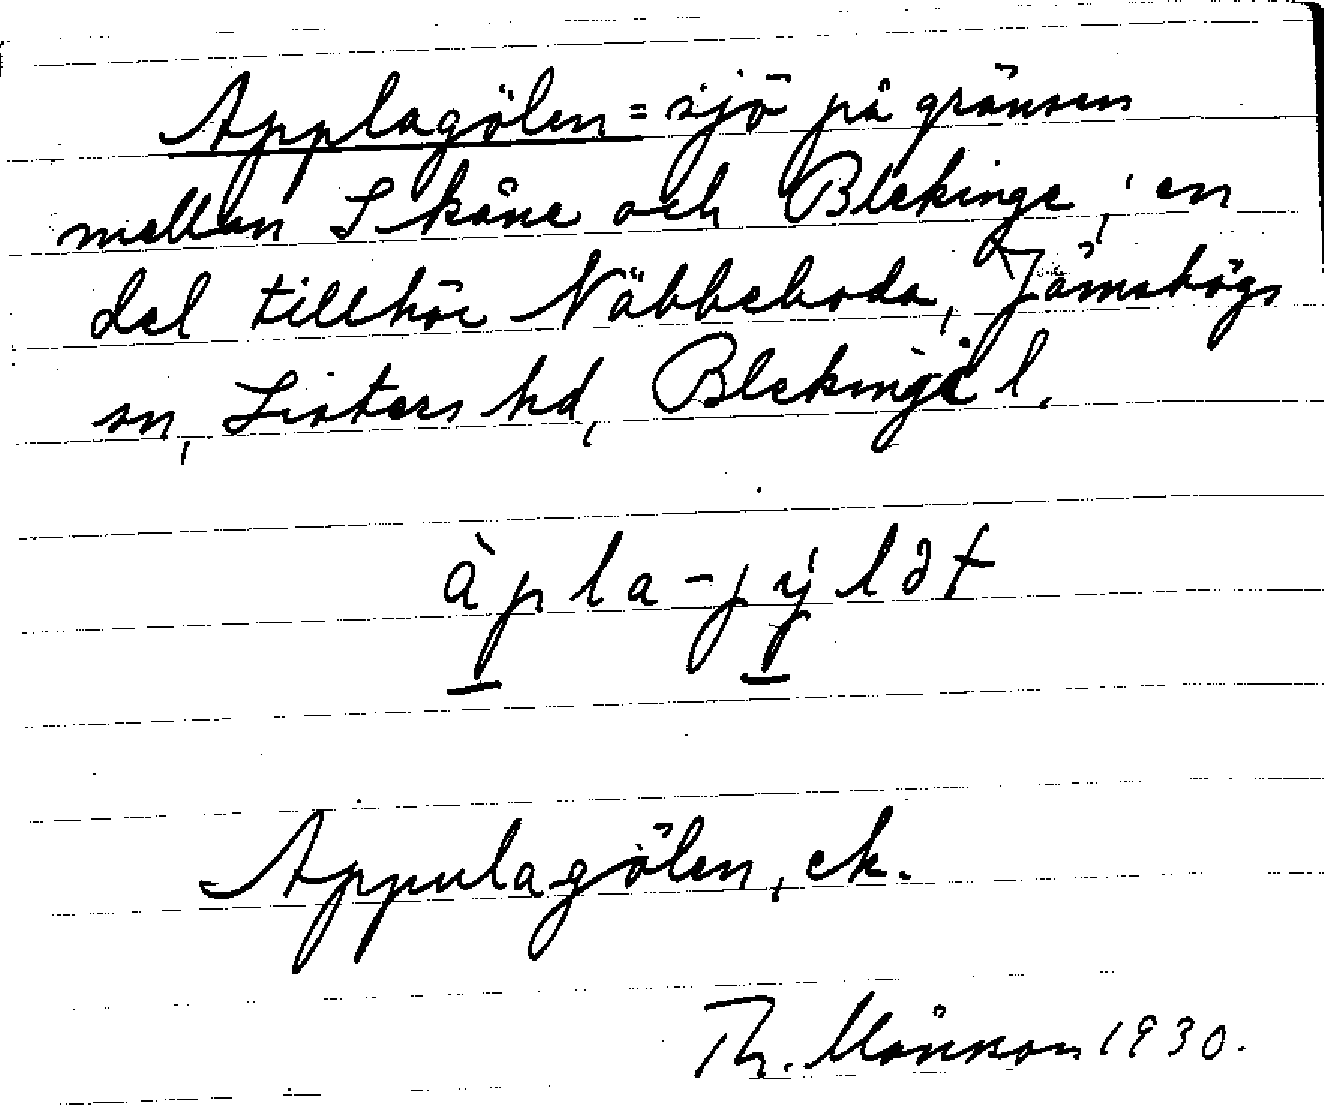 Applagölen = sjö på gränsen
mellan Skåne och Blekinge; en
del tillhör Näbbeboda, Jämshögs
sn, Listers hd, Blekinge l.
àpla-jýlət
Appulagölen, ek.
Th. Månsson 1930.